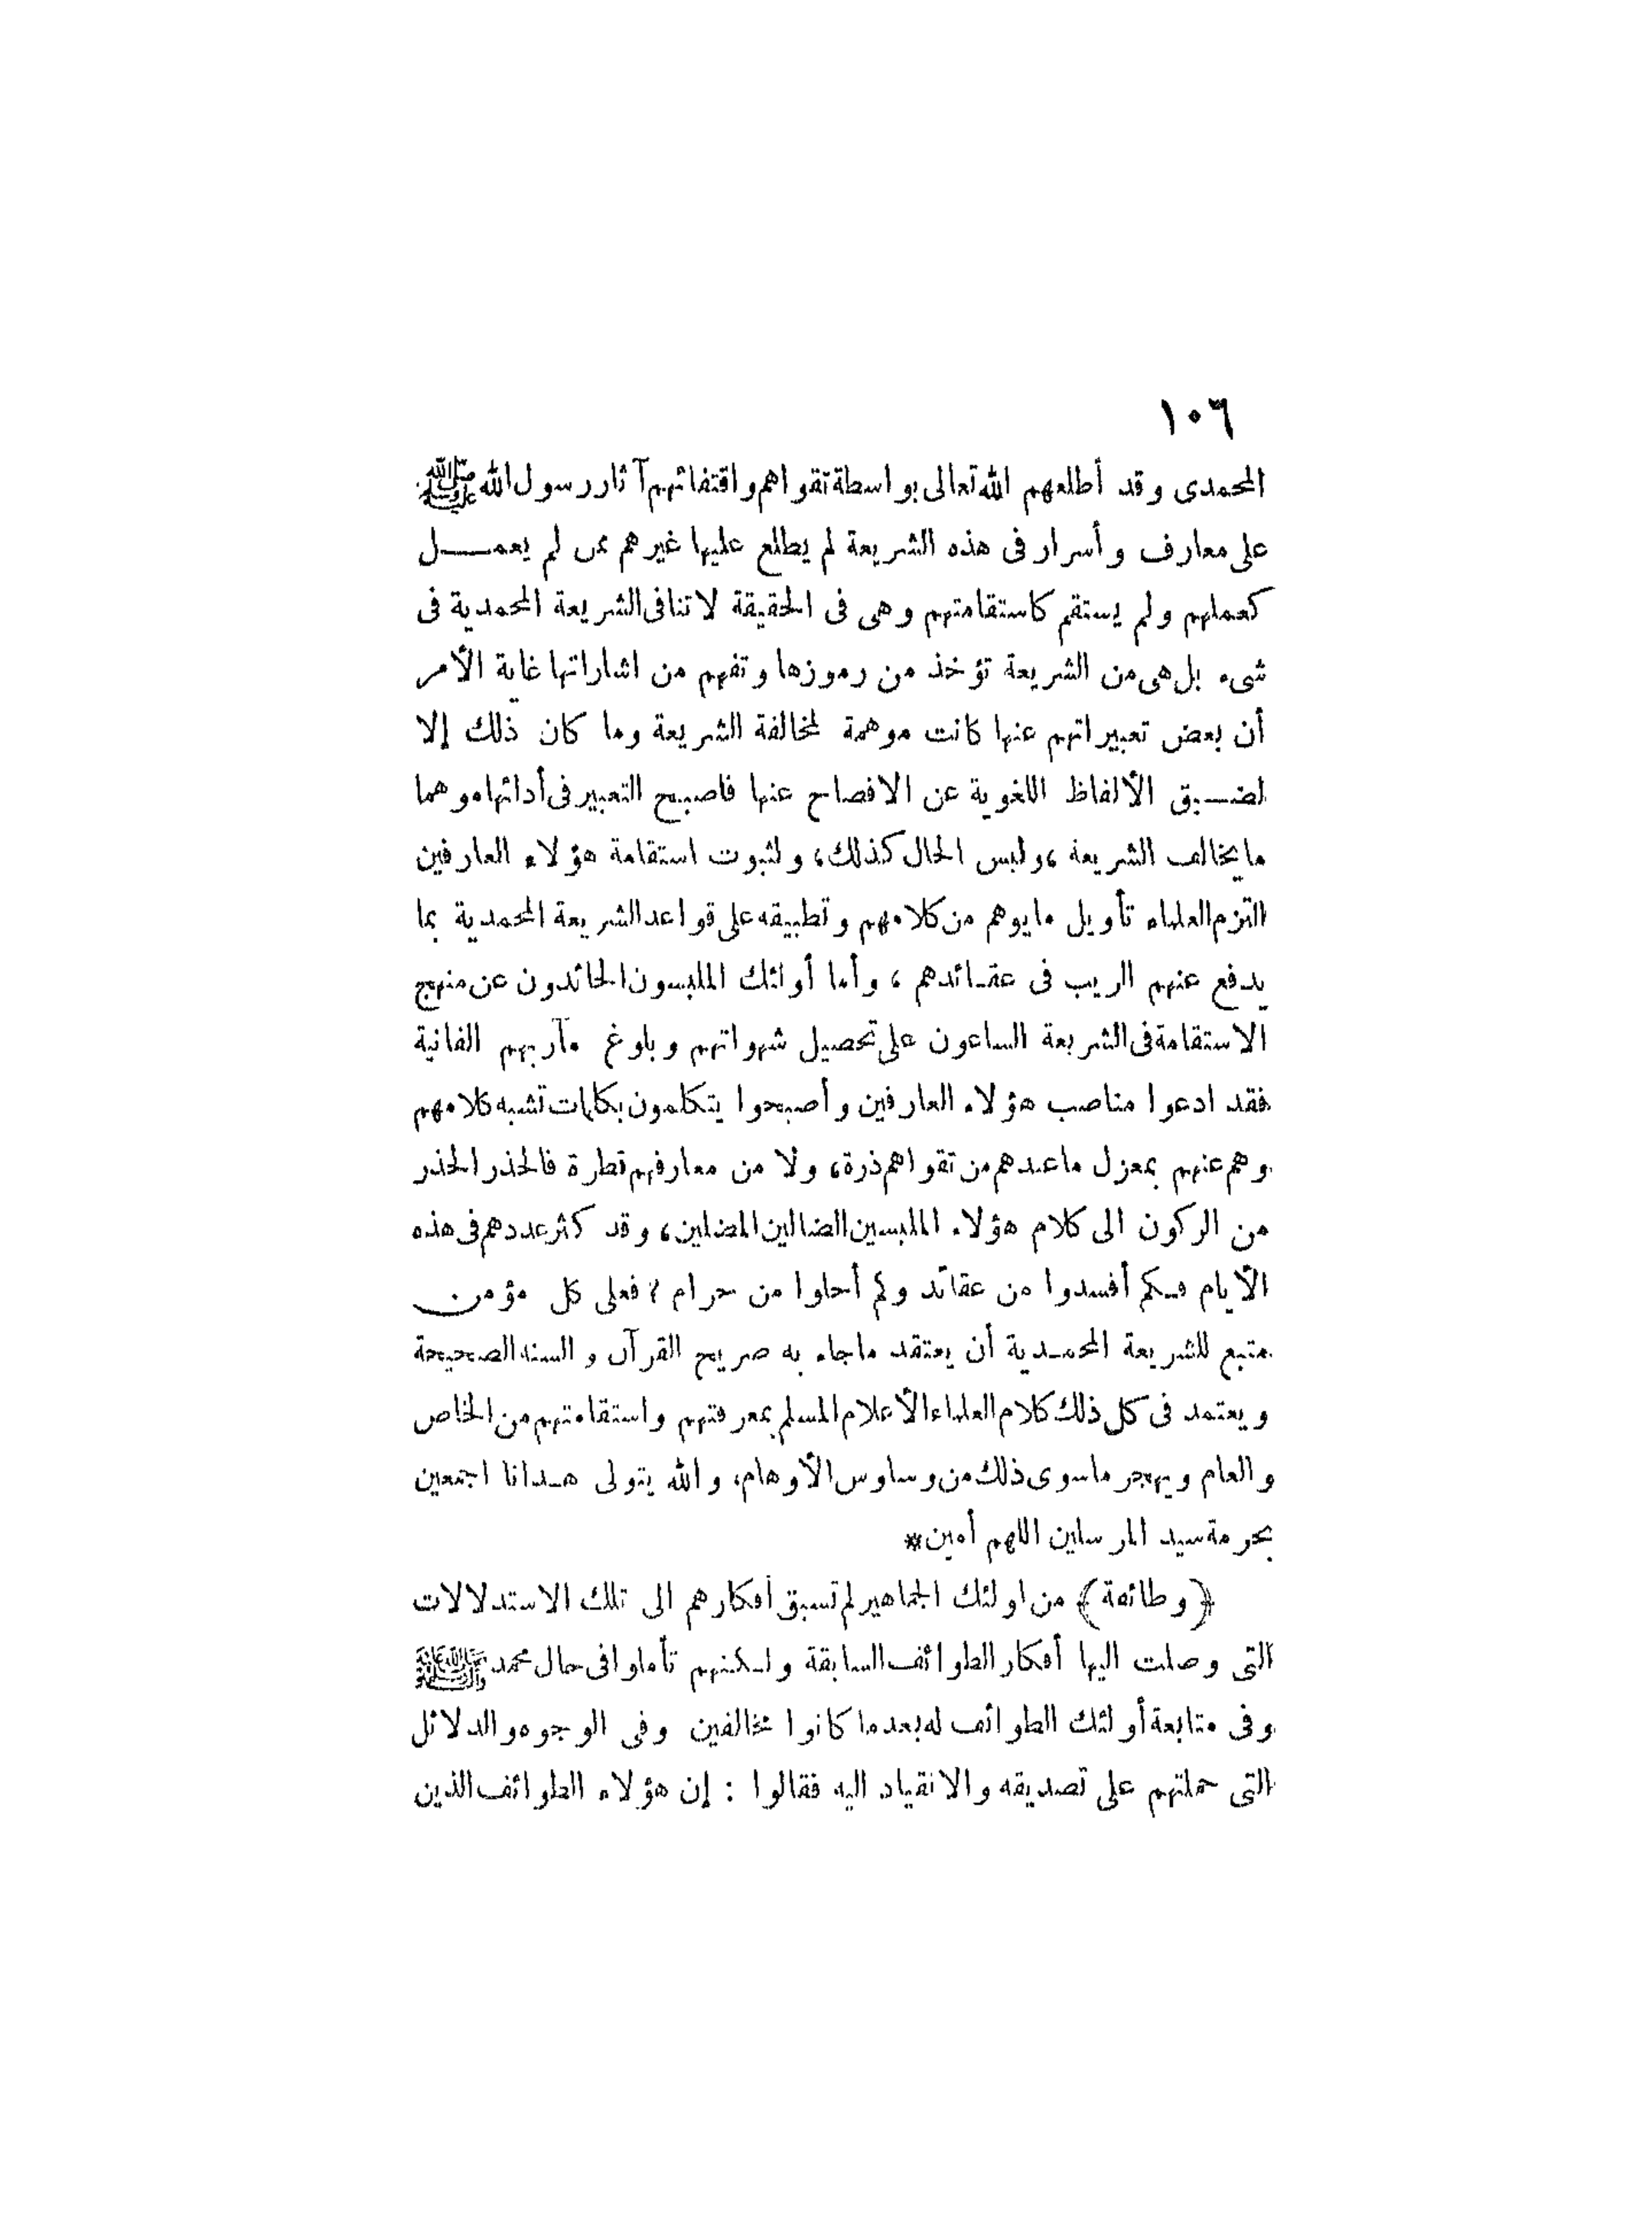 ١٠٦
المحمدى وقد أطلعهم الله تعالى بواسطة تقواهم واقتفائهم آثار رسول الله ﷺ
على معارف وأسرار فى هذه الشريعة لم يطلع عليها غيرهم ممن لم يعمـــل
كعملهم ولم يستقم كاستقامتهم وهى فى الحقيقة لا تنافى الشريعة المحمدية فى
شىء بل هى من الشريعة تؤخذ من رموزها وتفهم من اشاراتها غاية الأمر
أن بعض تعبيراتهم عنها كانت موهمة لمخالفة الشريعة وما كان ذلك إلا
لضـيق الألفاظ اللغوية عن الافصاح عنها فاصبح التعبير فى أدائها موهما
ما يخالف الشريعة ، وليس الحال كذلك ، ولثبوت استقامة هؤلاء العارفين
التزم العلماء تأويل ما يوهم من كلامهم وتطبيقه على قواعد الشريعة المحمدية بما
يدفع عنهم الريب فى عقـائدهم ، وأما أولئك الملبسون الحائدون عن منهج
الاستقامة فى الشريعة الساعون على تحصيل شهواتهم وبلوغ مآربهم الفانية
فقد ادعوا مناصب هؤلاء العارفين وأصبحوا يتكلمون بكلمات تشبه كلامهم
وهم عنهم بمعزل ما عندهم من تقواهم ذرة ، ولا من معارفهم قطرة فالحذر الحذر
من الركون الى كلام هؤلاء الملبسين الضالين المضلين ، وقد كثر عددهم فى هذه
الأيام فـكم أفسدوا من عقائد وكم أحلوا من حرام ؟ فعلى كل مؤمن
متبع للشريعة المحمـدية أن يعتقد ما جاء به صريح القرآن والسنة الصحيحة
ويعتمد فى كل ذلك كلام العلماء الأعلام المسلم بمعرفتهم واستقامتهم من الخاص
والعام ويهجر ما سوى ذلك من وساوس الأوهام ، والله يتولى هـدانا اجمعين
بحرمة سيد المرسلين اللهم أمين *
﴿ وطائفة ﴾ من اولئك الجماهير لم تسبق أفكارهم الى تلك الاستدلالات
التى وصلت اليها أفكار الطوائف السابقة ولـكنهم تأملوا فى حال محمد ﷺ
وفى متابعة أولئك الطوائف له بعد ما كانوا مخالفين وفى الوجوه والدلائل
التى حملتهم على تصديقه والانقياد اليه فقالوا : إن هؤلاء الطوائف الذين